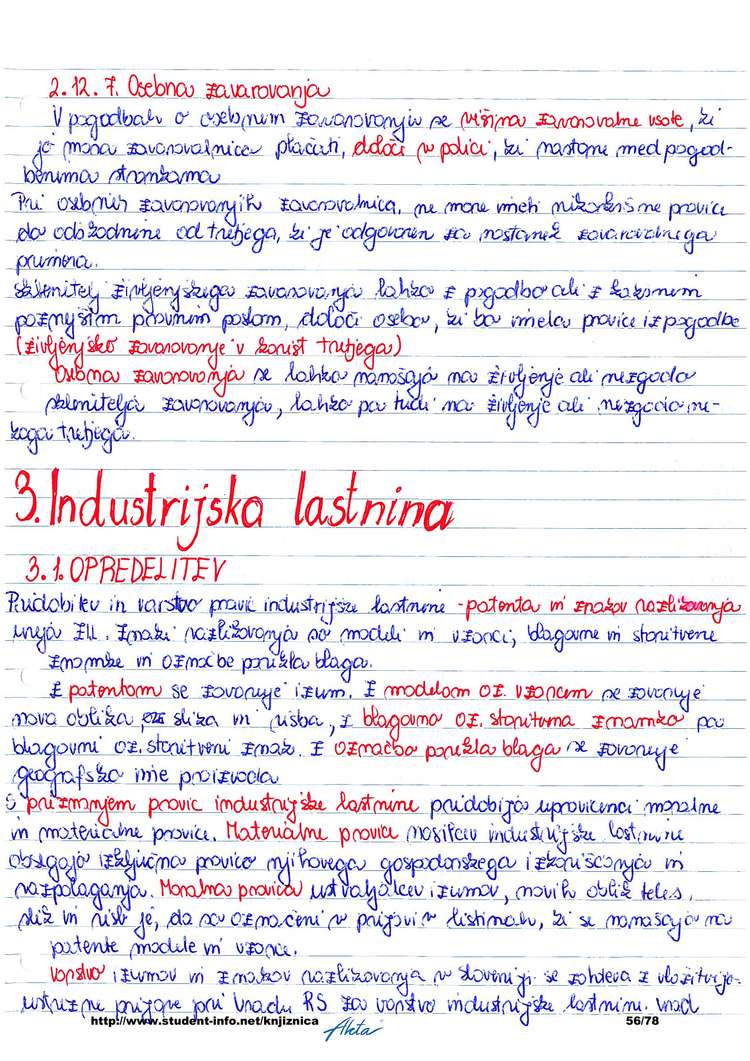 2.12.7. Osebna zavarovanja
V pogodbah o osebnem zavarovanju se višina zavarovalne vsote, ki
jo mora zavarovalnica plačati, določi v polici, ki nastane med pogod-
benima strankama
Pri osebnih zavarovanjih zavarovalnica, ne more imeti nikakršne pravice
do odškodnine od tretjega, ki je odgovoren za nastanek zavarovalnega
primera.
Sklenitelj življenjskega zavarovanja lahko z pogodbo ali z kakšnim
poznejšim pravnim poslom, določi osebo, ki bo imela pravice iz pogodbe
(življenjsko zavarovanje v korist tretjega)
Osebna zavarovanja se lahko nanašajo na življenje ali nezgodo
sklenitelja zavarovanja, lahko pa tudi na življenje ali nezgodo ne-
koga tretjega.
3. Industrijska lastnina
3.1. OPREDELITEV
Pridobitev in varstvo pravic industrijske lastnine - patenta in znakov razlikovanja
ureja ZIL. Znaki razlikovanja so modeli in vzorci, blagovne in storitvene
znamke in označbe porekla blaga.
Z patentom se zavaruje izum. Z modelom oz. vzorcem se zavaruje
nova oblika, slika in risba, z blagovno oz. storitveno znamko pa
blagovni oz. storitveni znak. Z označbo porekla blaga se zavaruje
geografsko ime proizvoda
S priznanjem pravic industrijske lastnine pridobijo upravičenci moralne
in materialne pravice. Materialne pravice nosilcev industrijske lastnine
obsegajo izključno pravico njihovega gospodarskega izkoriščanja in
razpolaganja. Moralna pravica ustvarjalcev izumov, novih oblik teles,
slik in risb je, da so označeni v prijavi in listinah, ki se nanašajo na
patente modele in vzorce.
Varstvo izumov in znakov razlikovanja v Sloveniji se zahteva z vložitvijo
ustrezne prijave pri Uradu RS za varstvo industrijske lastnine. Urad
http://www.student-info.net/knjiznica
56/78